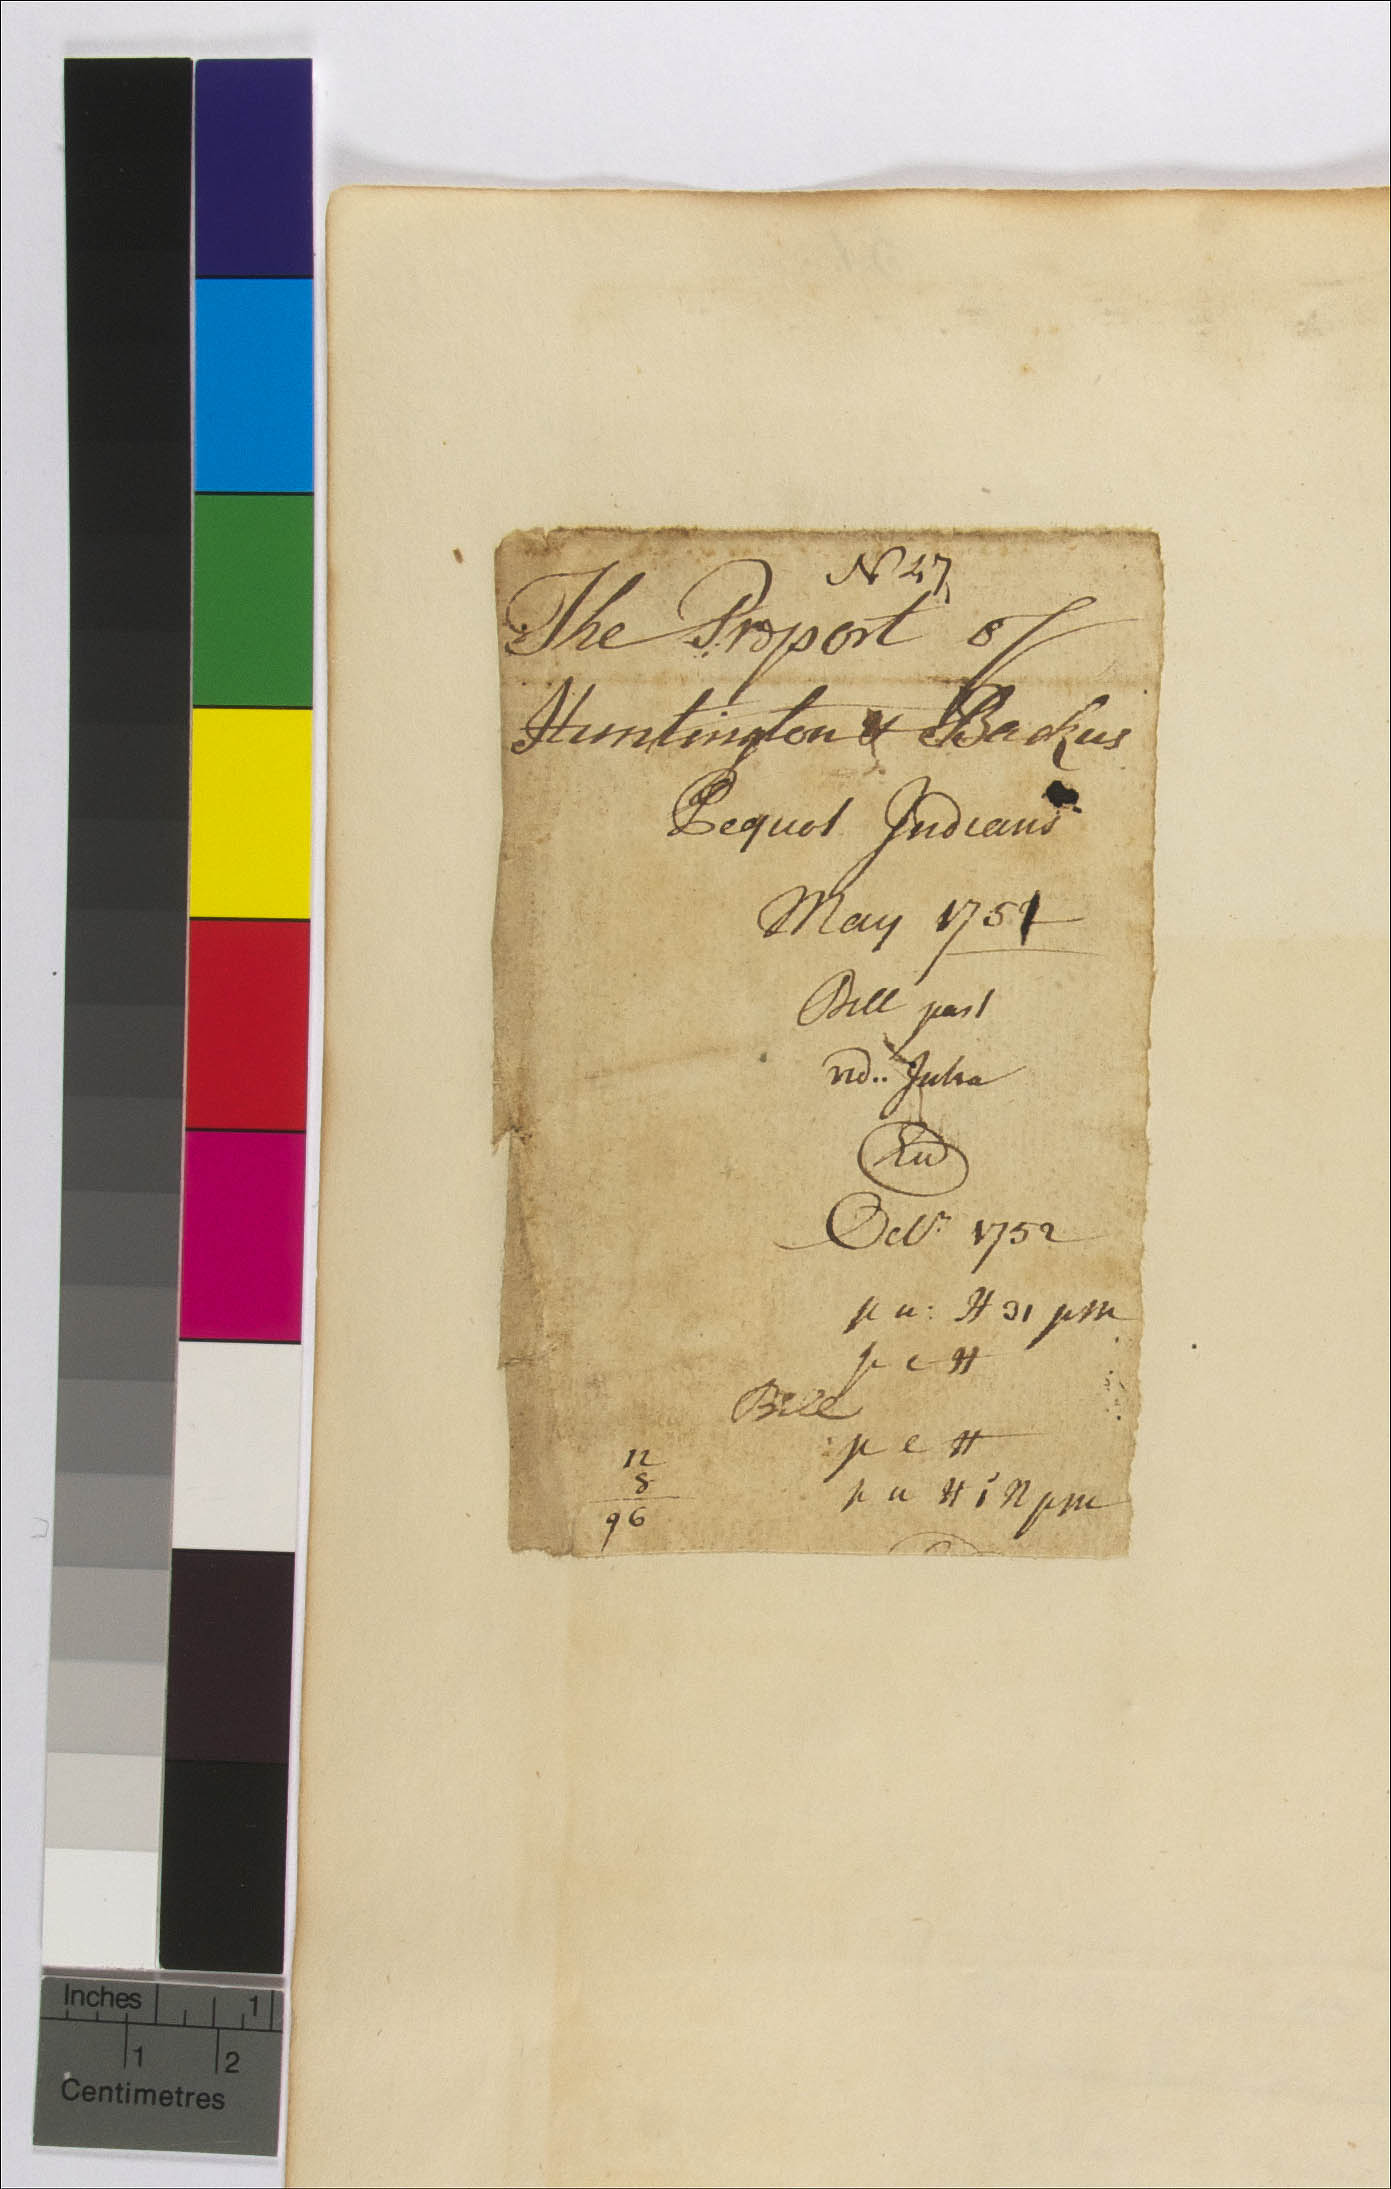 N 47
The Proport of
Huntington & Backus
Pequot Indians
May 1751
Bill past
vid.. Intra
Octr. 1752
p u: H 31 pm
p c H
Bill
p c H
p u H pm
12
8
96
Inches 1
1 2
Centimetres